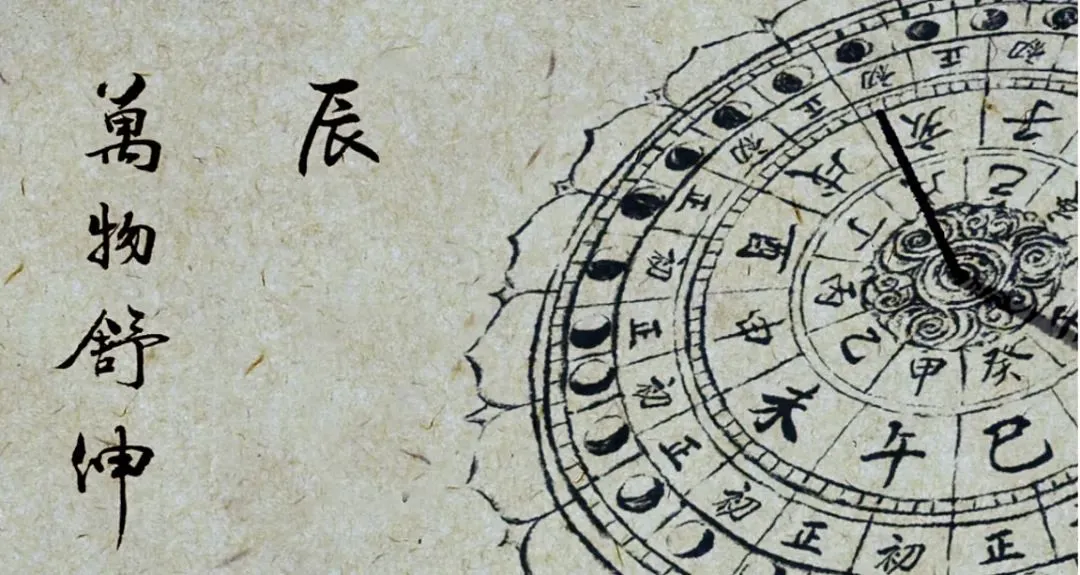 辰
萬物舒伸
初
正
初
正
初
正
初
正
初
正
初
正
初
正
初
正
子
亥
戌
酉
申
未
午
巳
己
丁
丙
乙
甲
癸